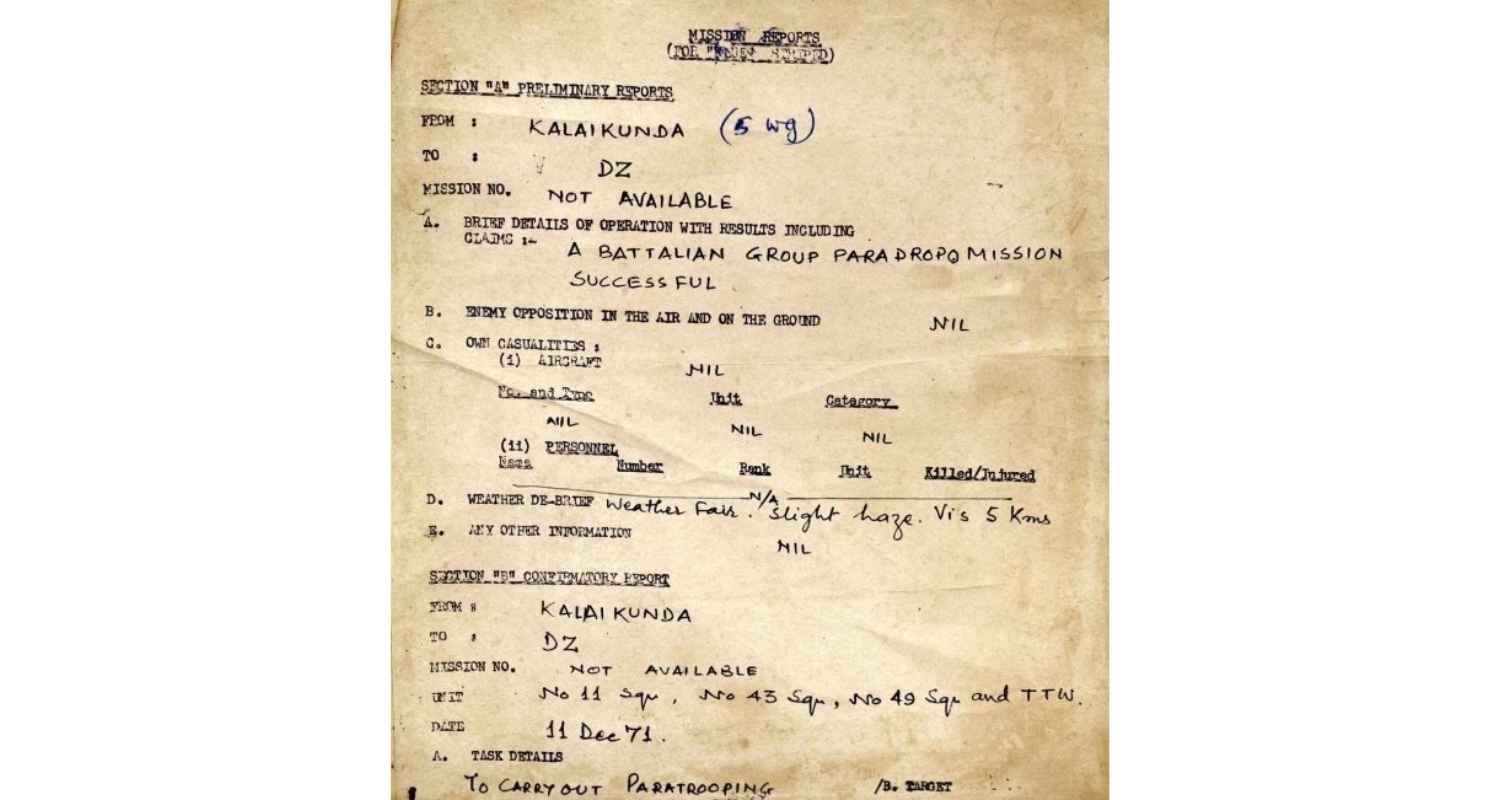 MISSION REPORTS
(FOR
SECTION "A" PRELIMINARY REPORTS
FROM : KALAIKUNDA (5 Wg)
TO : DZ
MISSION NO. NOT AVAILABLE
A. BRIEF DETAILS OF OPERATION WITH RESULTS INCLUDING
CLAIMS :- A BATTALIAN GROUP PARADROPO MISSION
SUCCESSFUL
B. ENEMY OPPOSITION IN THE AIR AND ON THE GROUND NIL
C. OWN CASUALITIES :
(i) AIRCRAFT NIL
No. and Type Unit Category
NIL NIL NIL
(ii) PERSONNEL
Name Number Rank Unit Killed/Injured
N/A
D. WEATHER DE-BRIEF Weather Fair. Slight haze. Vis 5 Kms
E. ANY OTHER INFORMATION NIL
SECTION "B" CONFIRMATORY REPORT
FROM : KALAIKUNDA
TO : DZ
MISSION NO. NOT AVAILABLE
UNIT No 11 Sqn, No 43 Sqn, No 49 Sqn and TTW.
DATE 11 Dec 71.
A. TASK DETAILS
TO CARRY OUT PARATROOPING /B. TARGET